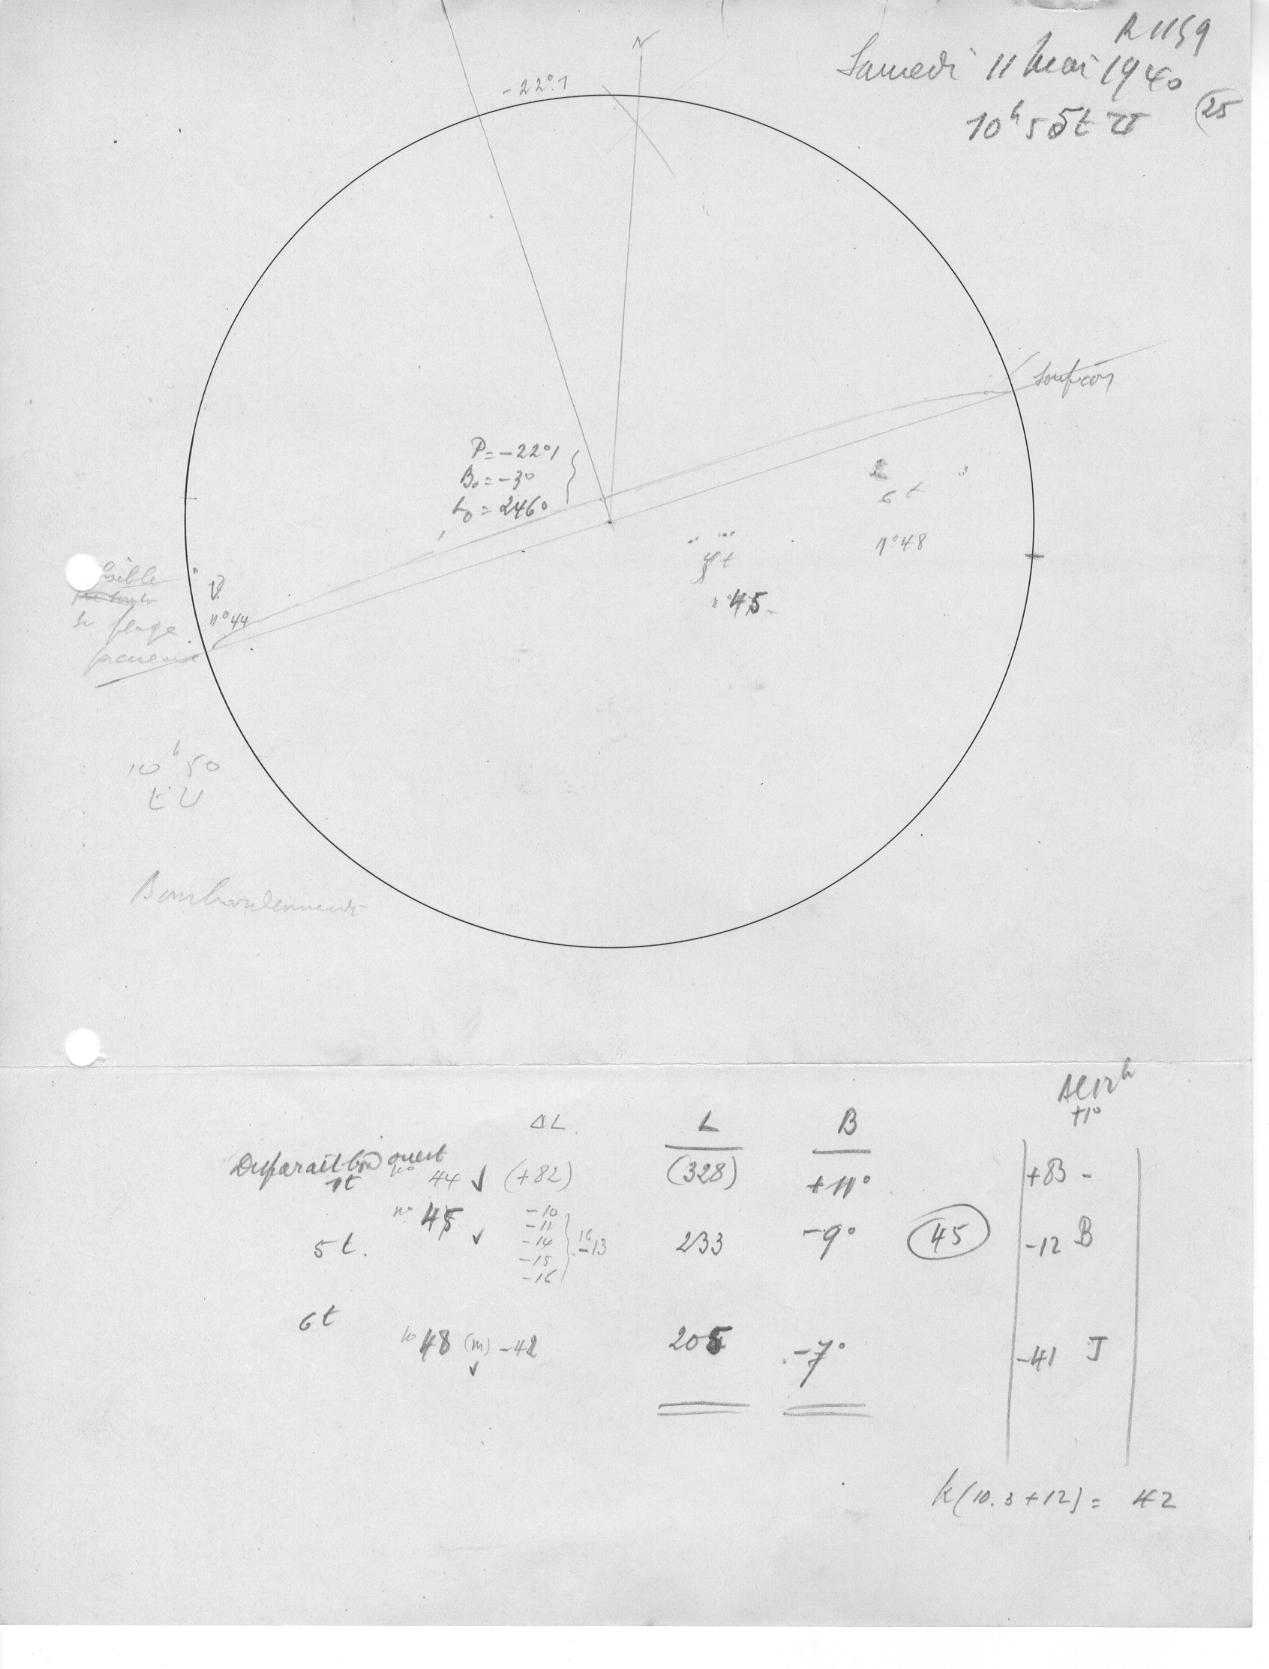 R 1159
Samedi 11 mai 1940
10h 55 t U
25
N
-22°,1
Soupçon
P = -22°,1
B₀ = -3°
L₀ = 246°
6 t
n°48
5 t
n°45
n°44
faible
sur plage
10h 50
t U
Bombardements
A 12h
+1°
ΔL L B
Disparait bord ouest
1t n° 44 (+82) (328) +11° +83 -
n° 45 -10
-11
5 t. -14 -13 233 -9° 45 -12 B
-15
-16
6 t
n° 48 (m) -42 205 -7° -41 J
k(10.3+12) = 42